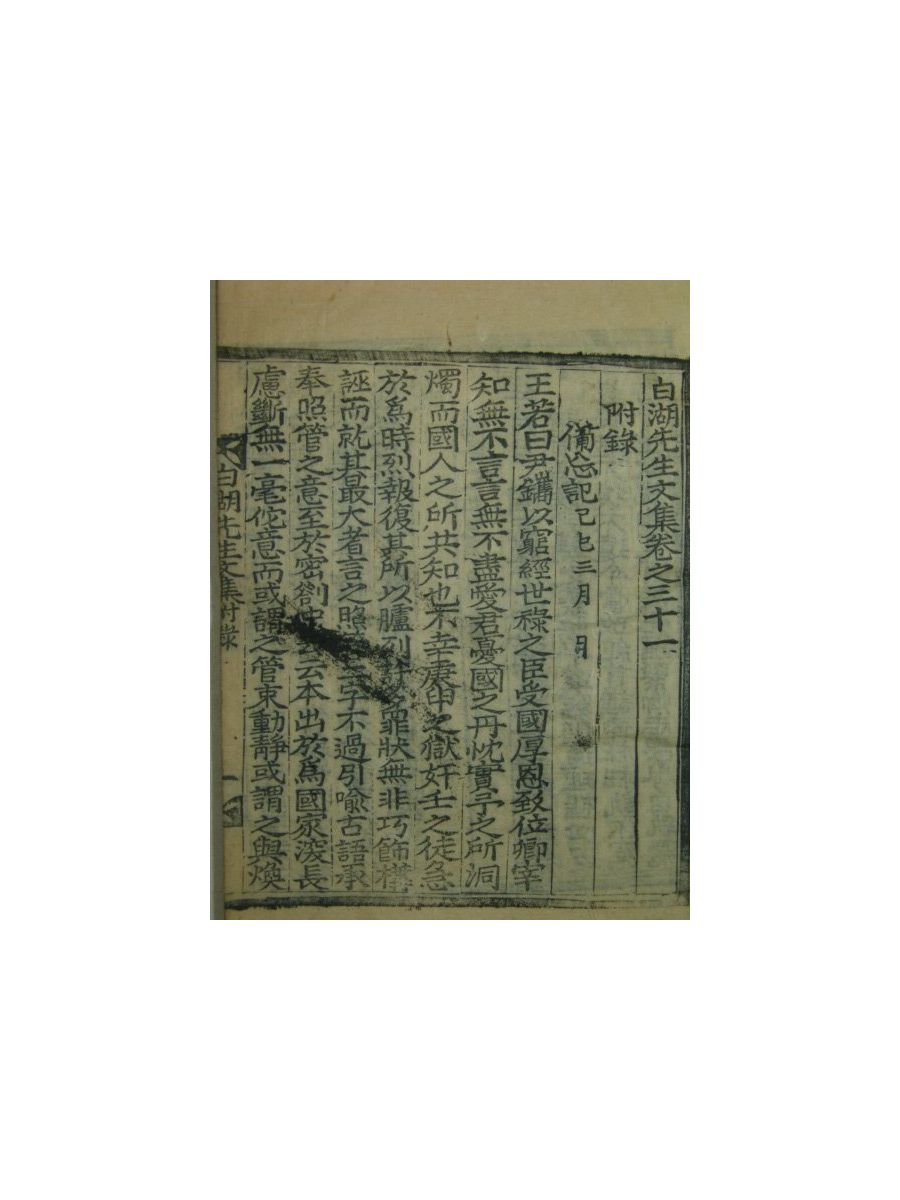 白湖先生文集卷之三十一
附錄
備忘記己巳三月 日
王若曰尹鑴以窮經世祿之臣受國厚恩致位卿宰
知無不言言無不盡愛君憂國之丹忱實予之所洞
燭而國人之所共知也不幸庚申之獄奸壬之徒急
於爲時烈報復其所以臚列罪狀無非巧飾構
誣而就其最大者言之照字不過引喩古語承
奉照管之意至於密劄云本出於爲國家深長
慮斷無一毫佗意而或謂之管束動靜或謂之與煥
白湖先生文集附錄 一